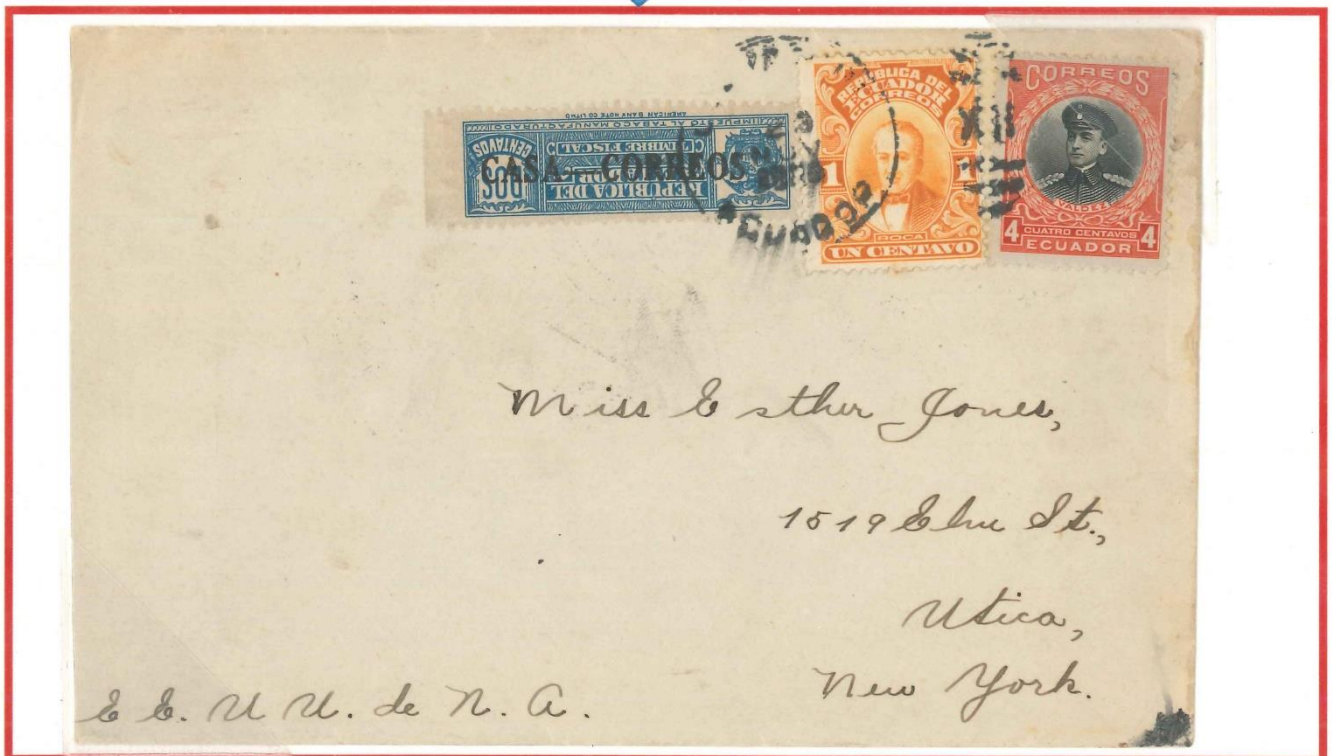 AMERICAN BANK NOTE CO. LITHO
IMPUESTO AL TABACO MANUFACTURADO
TIMBRE FISCAL
REPUBLICA DEL
DOS
CENTAVOS
CASA CORREOS
ECUADOR
REPÚBLICA DEL
ECUADOR
CORREOS
1 1
ROCA
UN CENTAVO
CORREOS
VALDEZ
4 CUATRO CENTAVOS 4
ECUADOR
Miss Esther Jones,
1519 Elm St.,
Utica,
New York.
E E. U U. de N. A.